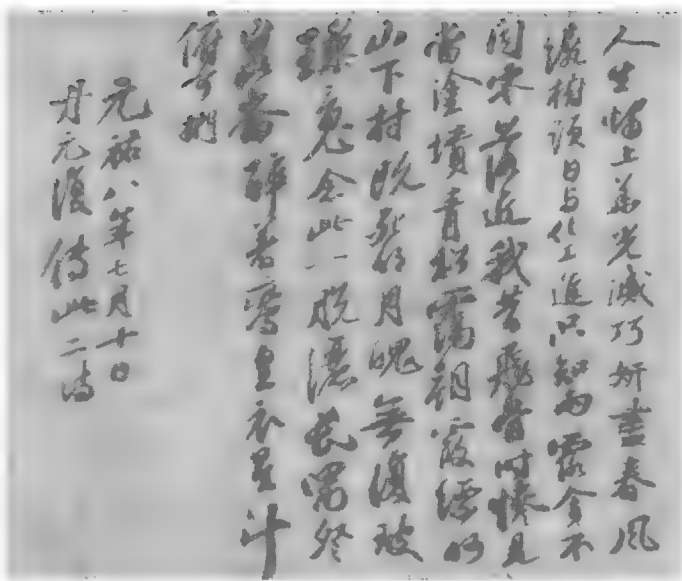 人生燭上華光滅巧妍盡春風
繞樹頭日与化工進只知雨露貪不
聞零落近我昔飛骨時慘見
當塗墳青松靄朝霞縹緲
山下村既死明月魄無復玻
璃魂念此一脫灑長嘯登
崑崙醉著鸞皇衣星斗
俯可捫
元祐八年七月十日
丹元復傳此二詩